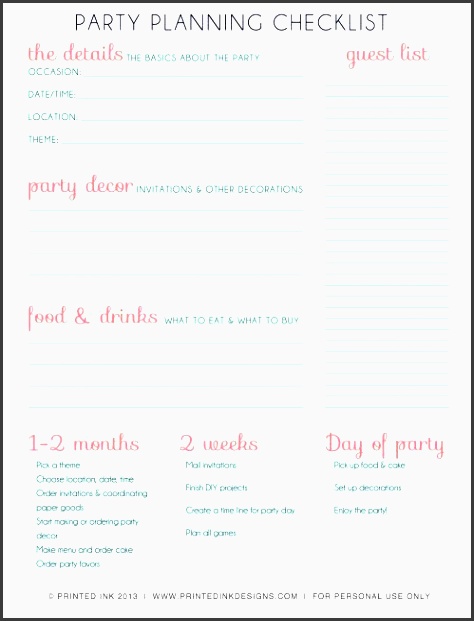 PARTY PLANNING CHECKLIST
the details THE BASICS ABOUT THE PARTY
OCCASION:
DATE/TIME:
LOCATION:
THEME:
guest list
party decor INVITATIONS & OTHER DECORATIONS
food & drinks WHAT TO EAT & WHAT TO BUY
1-2 months
Pick a theme
Choose location, date, time
Order invitations & coordinating
paper goods
Start making or ordering party
decor
Make menu and order cake
Order party favors
2 weeks
Mail invitations
Finish DIY projects
Create a time line for party day
Plan all games
Day of party
Pick up food & cake
Set up decorations
Enjoy the party!
© PRINTED INK 2013 | WWW.PRINTEDINKDESIGNS.COM | FOR PERSONAL USE ONLY